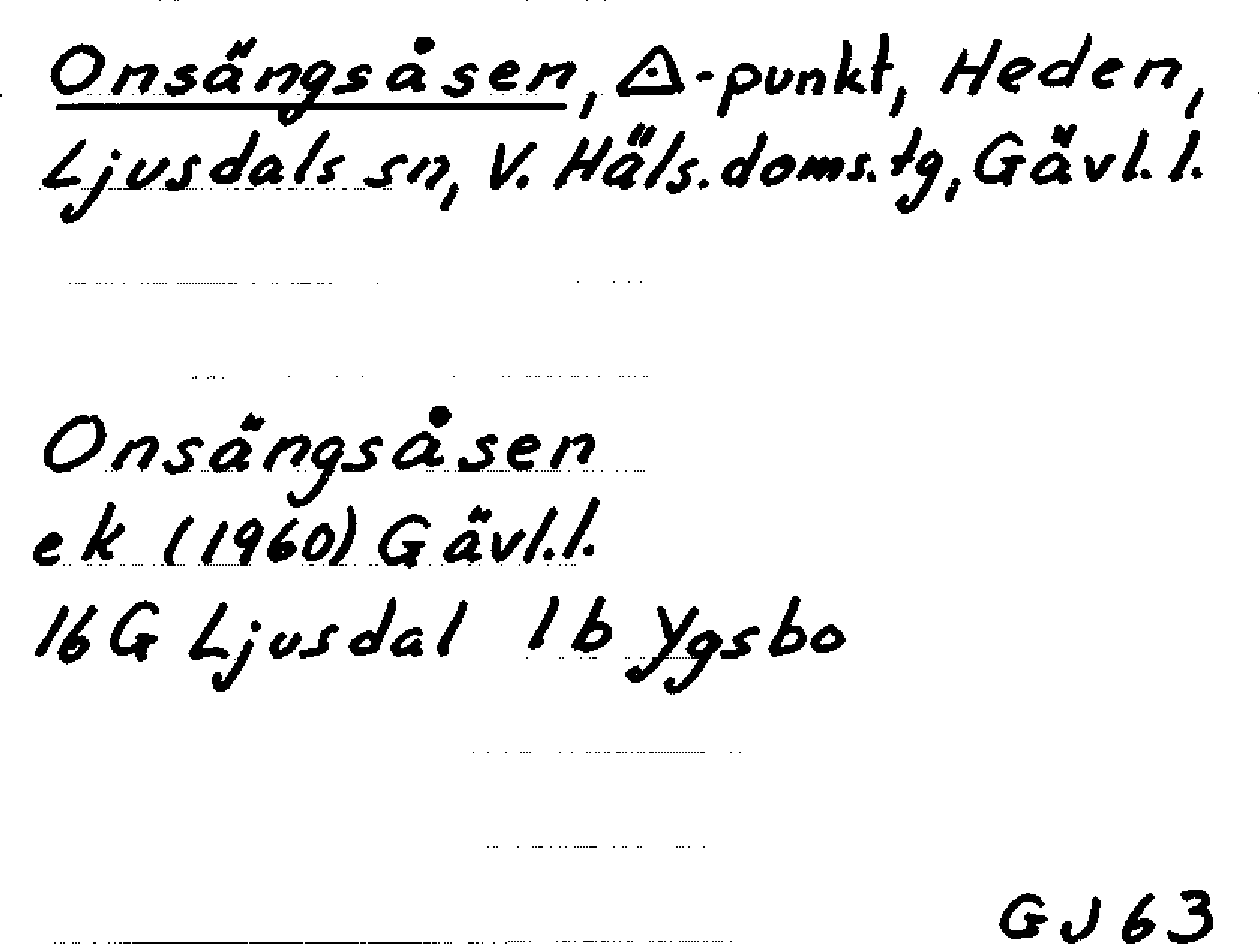 Onsängsåsen, △-punkt, Heden,
Ljusdals sn, V. Häls. doms. tg, Gävl. l.
Onsängsåsen
ek (1960) Gävl. l.
16 G Ljusdal 1b Ygsbo
GJ 63